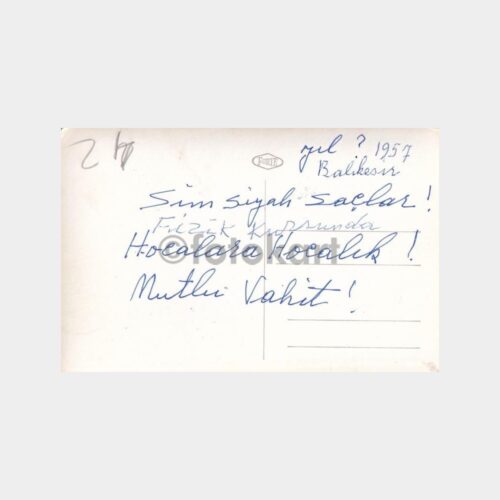 24
yıl ? 1957
Balıkesir
Simsiyah Saçlar !
Fizik Kursunda
Hocalara Hocalık !
Mutlu Vahit !
©fotokart